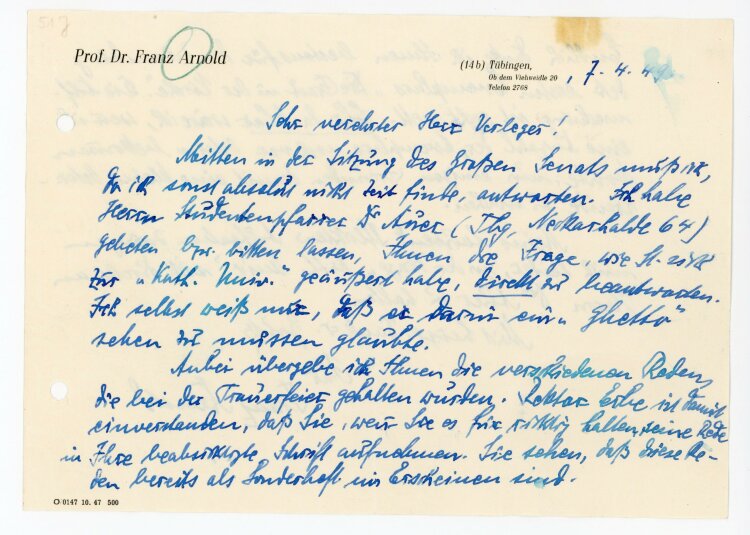 517
Prof. Dr. Franz Arnold
(14b) Tübingen,
Ob dem Viehweidle 20
Telefon 2768
, 7. 4. 49.
Sehr verehrter Herr Verleger!
Mitten in der Sitzung des Großen Senats muß ich,
da ich sonst absolut nicht Zeit finde, antworten. Ich habe
Herrn Studentenpfarrer Dr Auer (Tbg, Neckarhalde 64)
gebeten bzw. bitten lassen, Ihnen die Frage, wie St. sich
zur "Kath. Univ." geäußert habe, direkt zu beantworten.
Ich selbst weiß nur, daß er darin ein "Ghetto"
sehen zu müssen glaubte.
Anbei übergebe ich Ihnen die verschiedenen Reden,
die bei der Trauerfeier gehalten wurden. Rektor Erbe ist damit
einverstanden, daß Sie, wenn Sie es für richtig halten, seine Rede
in Ihre beabsichtigte Schrift aufnehmen. Sie sehen, daß diese Re-
den bereits als Sonderheft im Erscheinen sind.
O 0147 10. 47 500